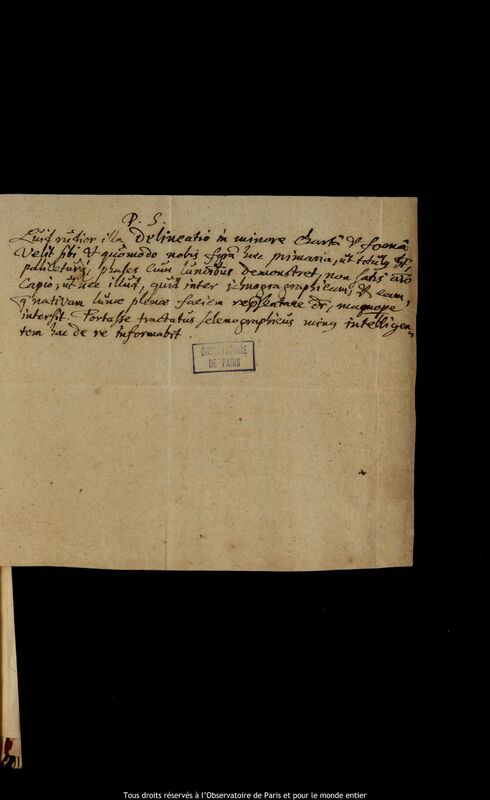 P. S.
Quid rudior illa Delineatio in minore charta & forma
Velit sibi & quomodo nobis figura haec primaria, ut titulus
pollicetur, phases cum luminibus demonstret, non satis
Capio, ut nec illud, quid inter ichnographicam & eam,
q nativam lunae plenae faciem repraesentare dr, magnope
intersit. Fortasse tractatus selenographicus minus intelligen
tem hac de re informabit.
OBSERVATOIRE
DE PARIS
Tous droits réservés à l'Observatoire de Paris et pour le monde entier